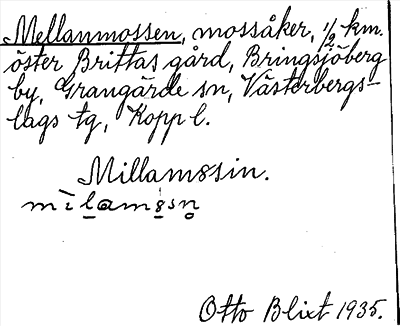 Mellanmossen, mossåker, 1/2 km.
öster Brittas gård, Bringsjöberg
by, Grangärde sn, Västerbergs-
lags tg, Kopp l.
Millam8sin.
Otto Blixt 1935.